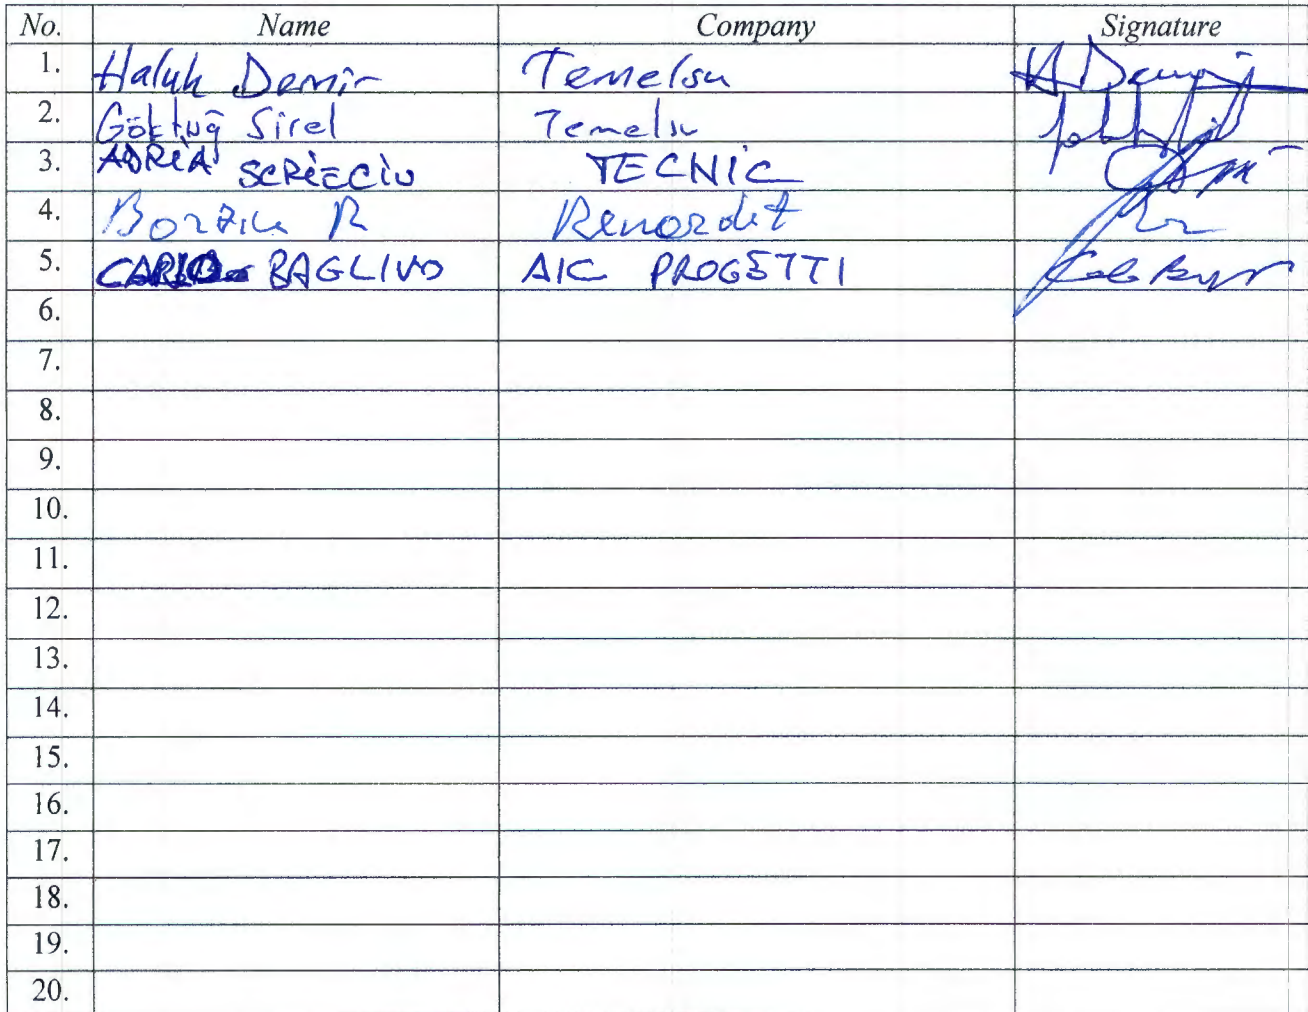 No. Name Company Signature
1. Haluk Demir Temelsu H Demir
2. Göktuğ Sirel Temelsu
3. ADRIA SCRIECIU TECNIC
4. R
5. CARLO BAGLIVO AIC PROGETTI
6.
7.
8.
9.
10.
11.
12.
13.
14.
15.
16.
17.
18.
19.
20.